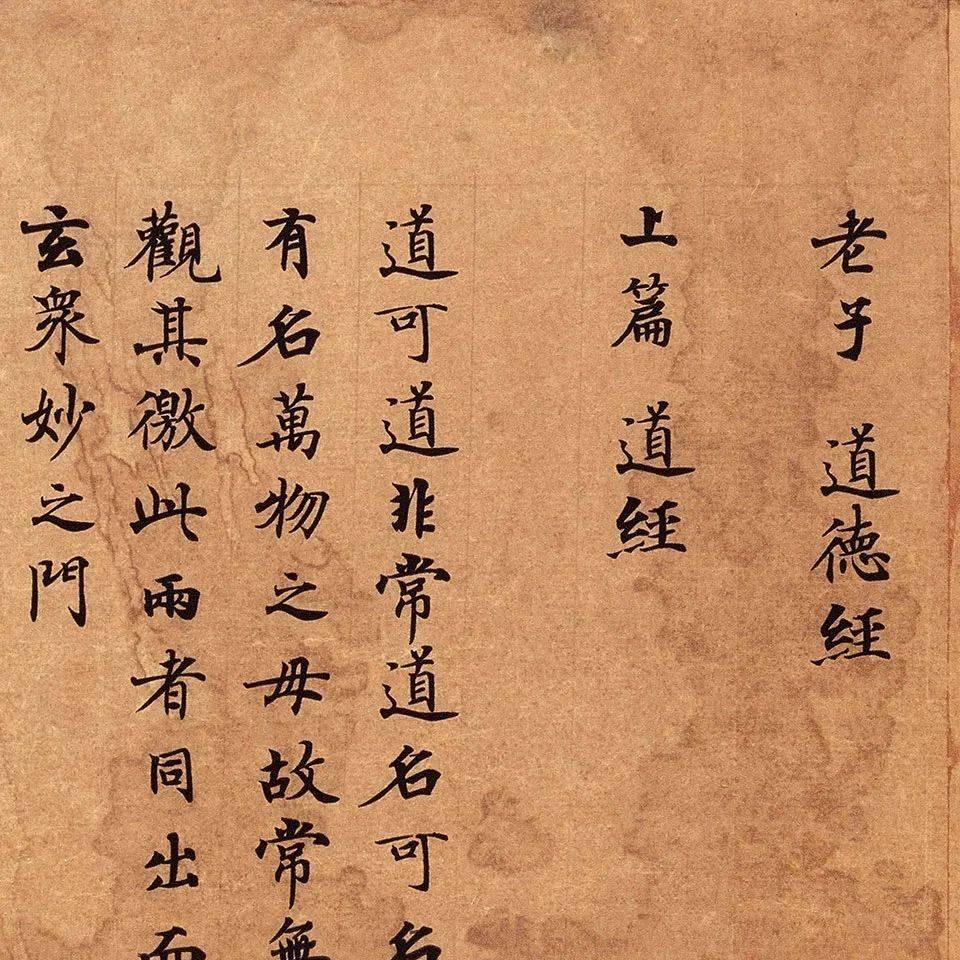 老子 道德經
上篇 道經
道可道非常道名可名
有名萬物之母故常無
觀其徼此兩者同出而
玄眾妙之門